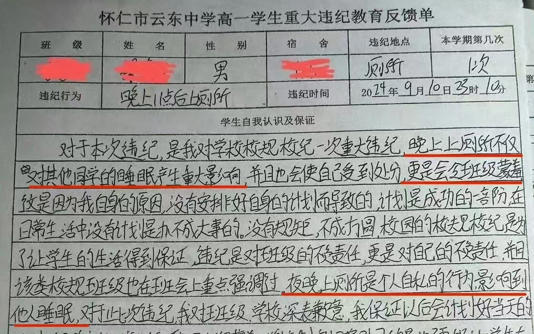 怀仁市云东中学高一学生重大违纪教育反馈单
班 级 姓 名 性 别 宿 舍 违纪地点 本学期第几次
男 厕所 1次
违纪行为 晚上11点后上厕所 违纪时间 2024年9月10日23时10分
学生自我认识及保证
对于本次违纪,是我对学校校规校纪一次重大违纪,晚上上厕所不仅
对其他同学的睡眠产生重大影响,并且也会使自己受到处分,更是会给班级蒙羞
这是因为我自身的原因,没有安排好自身的计划而导致的,计划是成功的音阶,在
日常生活中没有计划是办不成大事的。没有规矩,不成方圆,校园的校规校纪是为
了让学生的生活得到保证,违纪是对班级的不负责任,更是对自己的不负责任,并且
该条校规班级也在班会上重点强调过,夜晚上厕所是个人自私的行为,影响到
他人睡眠,对于此次违纪,我对班级、学校深表歉意,我保证以后会计划好当天的